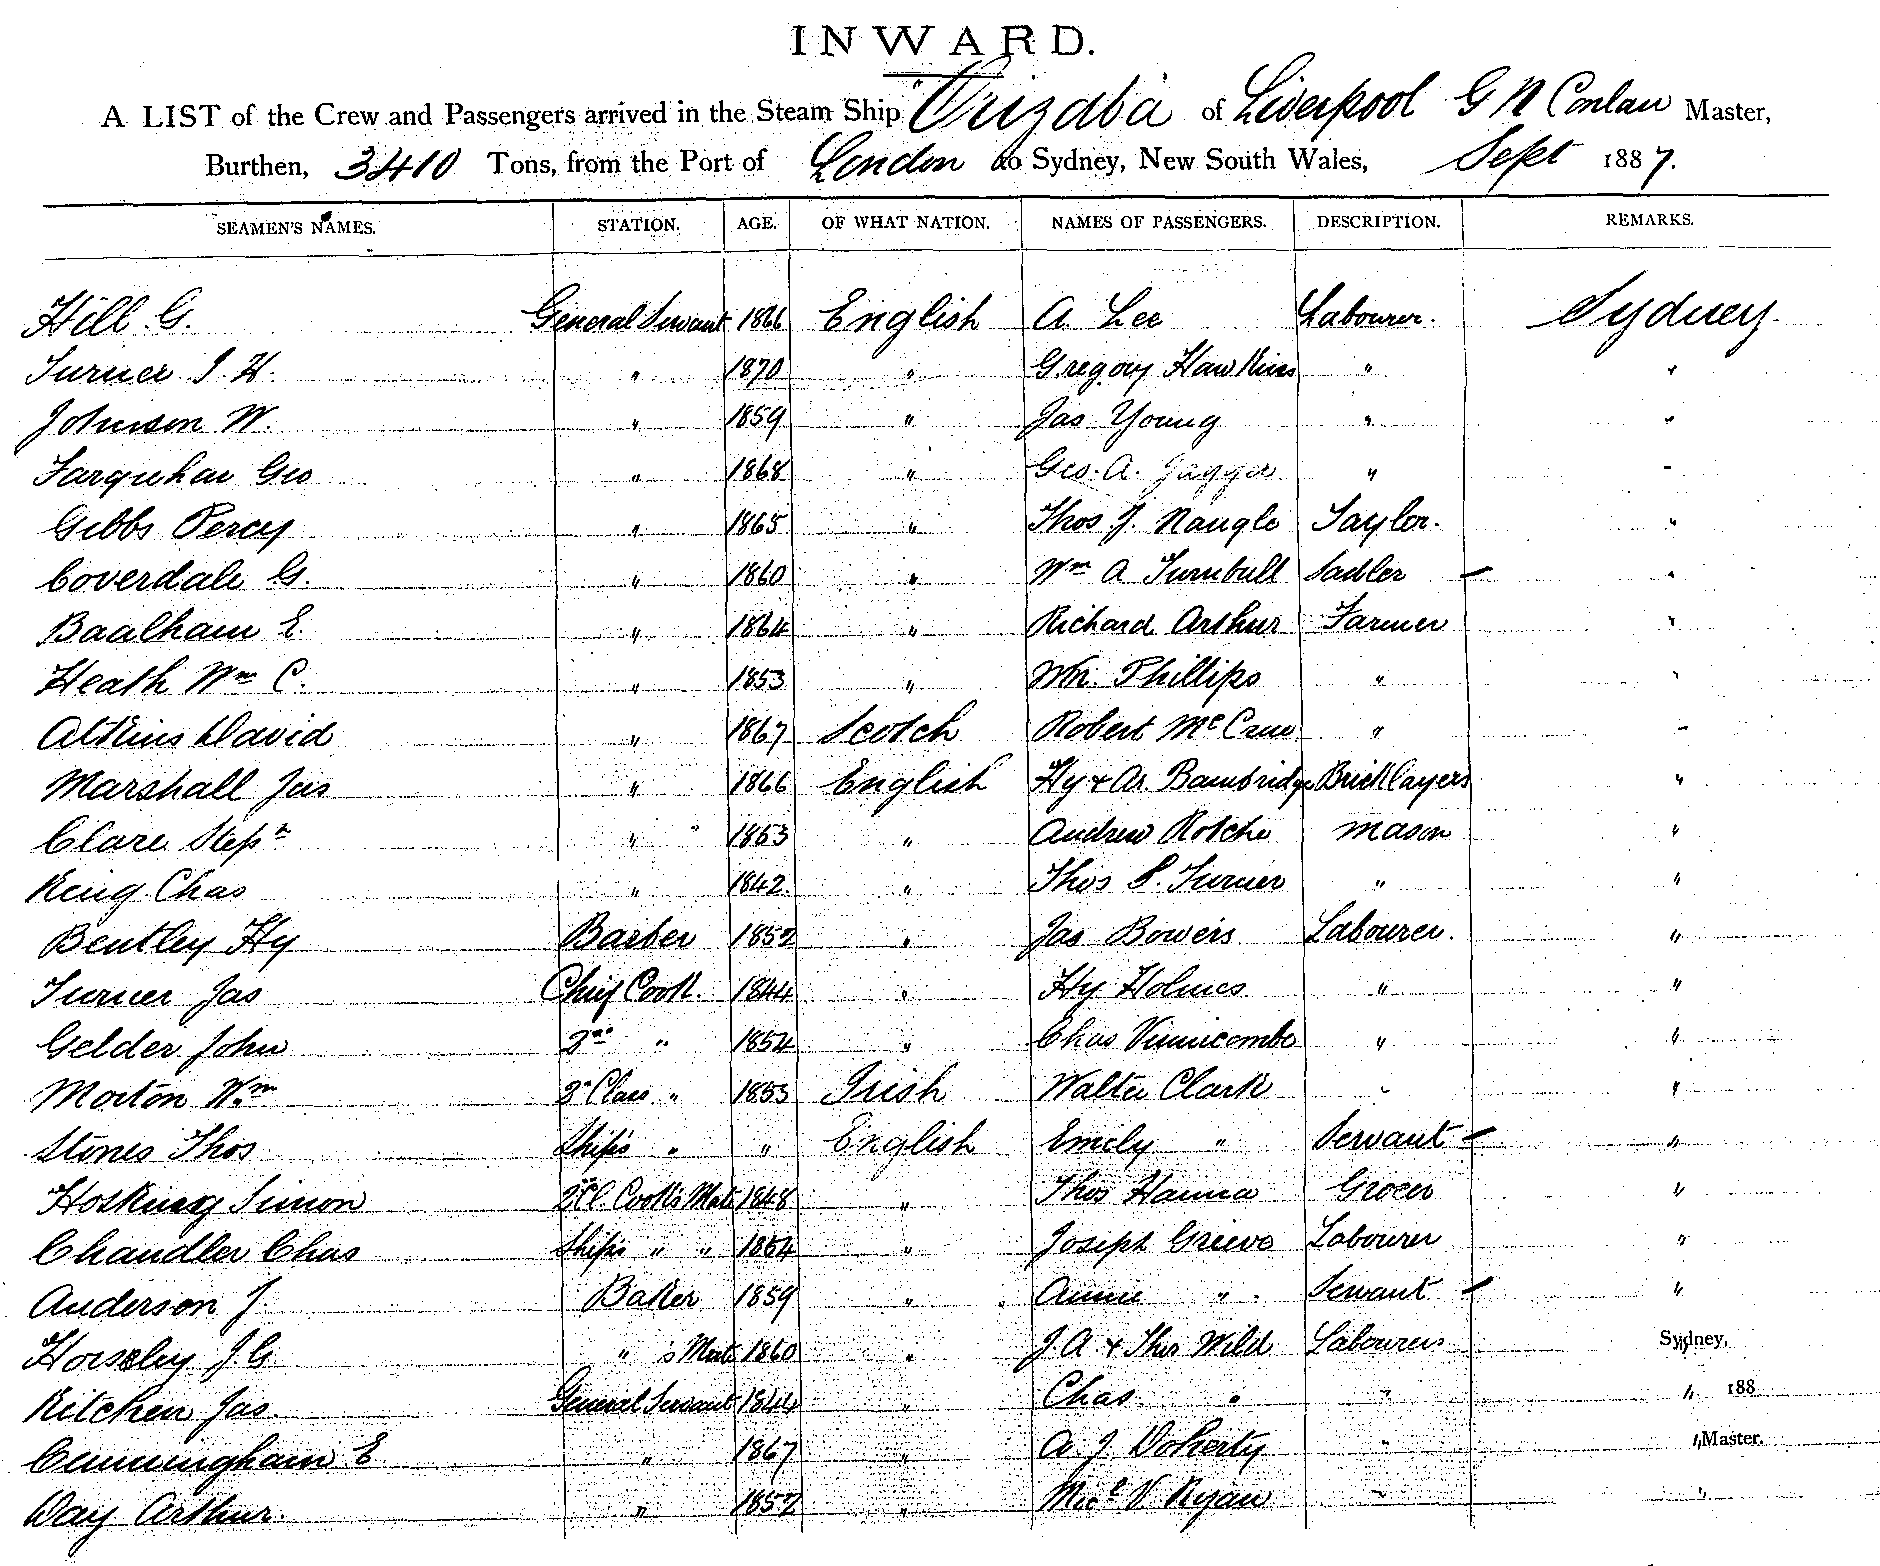 INWARD.
A LIST of the Crew and Passengers arrived in the Steam Ship "Orizaba of Liverpool G N Conlan Master,
Burthen, 3410 Tons, from the Port of London to Sydney, New South Wales, Sept 1887.
SEAMEN'S NAMES. STATION. AGE. OF WHAT NATION. NAMES OF PASSENGERS. DESCRIPTION. REMARKS.
Hill G. General Servant 1866 English A Lee Labourer. Sydney
Turner J. H. " 1870 " Gregory Hawkins " "
Johnson W. " 1859 " Jas Young " "
Farquhar Geo " 1868 " Geo. A. Jagger " "
Gibbs Percy " 1865 " Thos J. Naugle Taylor. "
Coverdale G. " 1860 " Wm A Turnbull Sadler "
Baalham E. " 1864 " Richard Arthur Farmer "
Heath Wm C. " 1853 " Wm. Phillips " "
Atkins David " 1867 Scotch Robert McCrue " "
Marshall Jas " 1866 English Hy & Ar. Bambridge Bricklayers "
Clare Stepn " 1853 " Andrew Rotche Mason "
King Chas " 1842 " Thos S. Turner " "
Bentley Hy Barber 1852 " Jas Bowers Labourer. "
Turner Jas Chief Cook 1844 " Hy Holmes " "
Gelder John 2nd " 1854 " Chas Vinnicombe " "
Morton Wm 2n Class " 1853 Irish Walter Clark " "
Stones Thos Ship's " " English Emely " Servant "
Hosking Simon 2nd Cl. Cook's Mate 1848 " Thos Hanna Grocer "
Chandler Chas Ship's " " 1864 " Joseph Greeve Labourer "
Anderson J. Baker 1859 " Annie " Servant "
Horseley J. G. " 's Mate 1860 " J. A & Thos Wild Labourers " Sydney,
Kitchen Jas. General Servant 1844 " Chas " " " 188
Cunningham E " 1867 " A. J. Doherty " " Master.
Day Arthur. " 1852 " Micl V Ryan " "